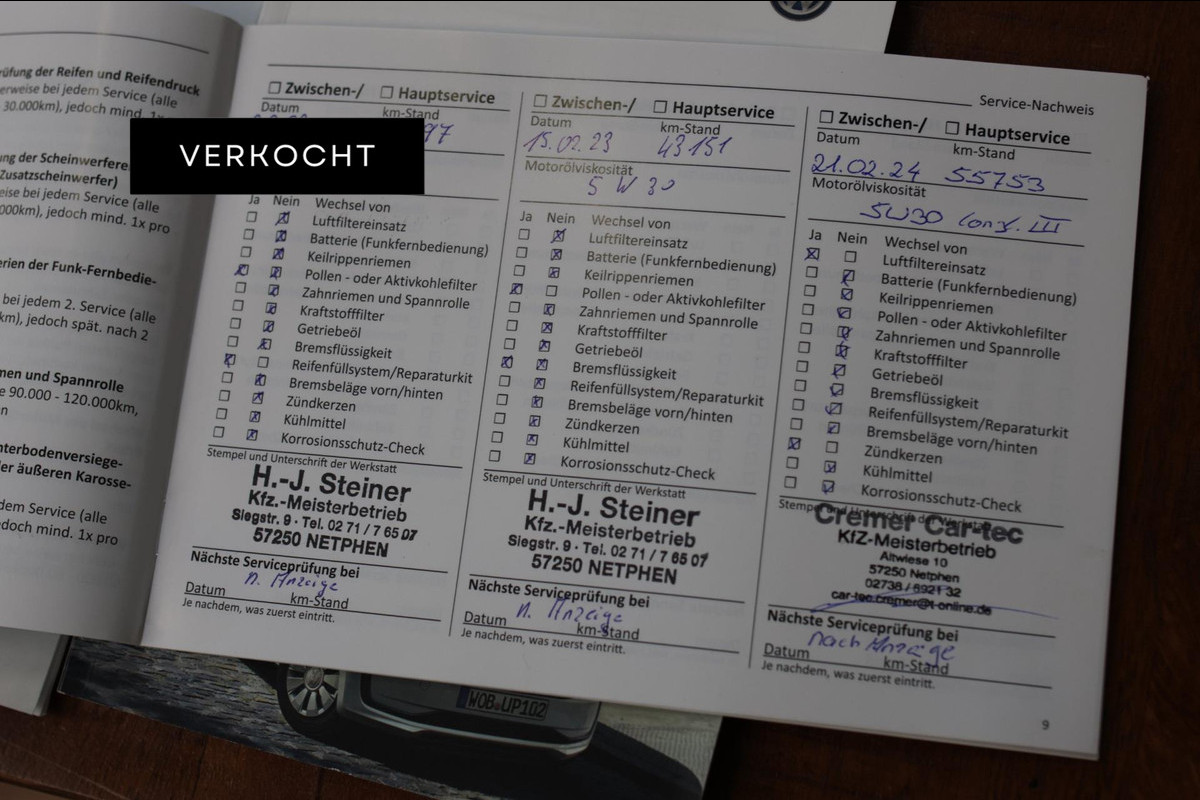 rüfung der Reifen und Reifendruck
erweise bei jedem Service (alle
30.000km), jedoch mind. 1x
ng der Scheinwerfere
Zusatzscheinwerfer)
eise bei jedem Service (alle
000km), jedoch mind. 1x pro
erien der Funk-Fernbedie-
bei jedem 2. Service (alle
km), jedoch spät. nach 2
men und Spannrolle
e 90.000 - 120.000km,
en
nterbodenversiege-
der äußeren Karosse-
dem Service (alle
edoch mind. 1x pro
VERKOCHT
☐ Zwischen-/ ☐ Hauptservice
Datum
97
Ja Nein Wechsel von
Luftfiltereinsatz
Batterie (Funkfernbedienung)
Keilrippenriemen
Pollen - oder Aktivkohlefilter
Zahnriemen und Spannrolle
Kraftstofffilter
Getriebeöl
Bremsflüssigkeit
Reifenfüllsystem/Reparaturkit
Bremsbeläge vorn/hinten
Zündkerzen
Kühlmittel
Korrosionsschutz-Check
Stempel und Unterschrift der Werkstatt
H.-J. Steiner
Kfz.-Meisterbetrieb
Siegstr. 9 · Tel. 02 71 / 7 65 07
57250 NETPHEN
Nächste Serviceprüfung bei
n. Anzeige
Datum km-Stand
Je nachdem, was zuerst eintritt.
☐ Zwischen-/ ☐ Hauptservice
Datum km-Stand
15.02.23 43151
Motorölviskosität
5 W 30
Ja Nein Wechsel von
Luftfiltereinsatz
Batterie (Funkfernbedienung)
Keilrippenriemen
Pollen - oder Aktivkohlefilter
Zahnriemen und Spannrolle
Kraftstofffilter
Getriebeöl
Bremsflüssigkeit
Reifenfüllsystem/Reparaturkit
Bremsbeläge vorn/hinten
Zündkerzen
Kühlmittel
Korrosionsschutz-Check
Stempel und Unterschrift der Werkstatt
H.-J. Steiner
Kfz.-Meisterbetrieb
Siegstr. 9 · Tel. 02 71 / 7 65 07
57250 NETPHEN
Nächste Serviceprüfung bei
n. Anzeige
Datum km-Stand
Je nachdem, was zuerst eintritt.
Service-Nachweis
☐ Zwischen-/ ☐ Hauptservice
Datum km-Stand
21.02.24 55753
Motorölviskosität
5W30 Long. III
Ja Nein Wechsel von
Luftfiltereinsatz
Batterie (Funkfernbedienung)
Keilrippenriemen
Pollen - oder Aktivkohlefilter
Zahnriemen und Spannrolle
Kraftstofffilter
Getriebeöl
Bremsflüssigkeit
Reifenfüllsystem/Reparaturkit
Bremsbeläge vorn/hinten
Zündkerzen
Kühlmittel
Korrosionsschutz-Check
Stempel und Unterschrift der Werkstatt
Cremer Car-tec
KfZ-Meisterbetrieb
Altwiese 10
57250 Netphen
02738 / 6921 32
car-tec.cremer@t-online.de
Nächste Serviceprüfung bei
nach Anzeige
Datum km-Stand
Je nachdem, was zuerst eintritt.
9
WOB UP102